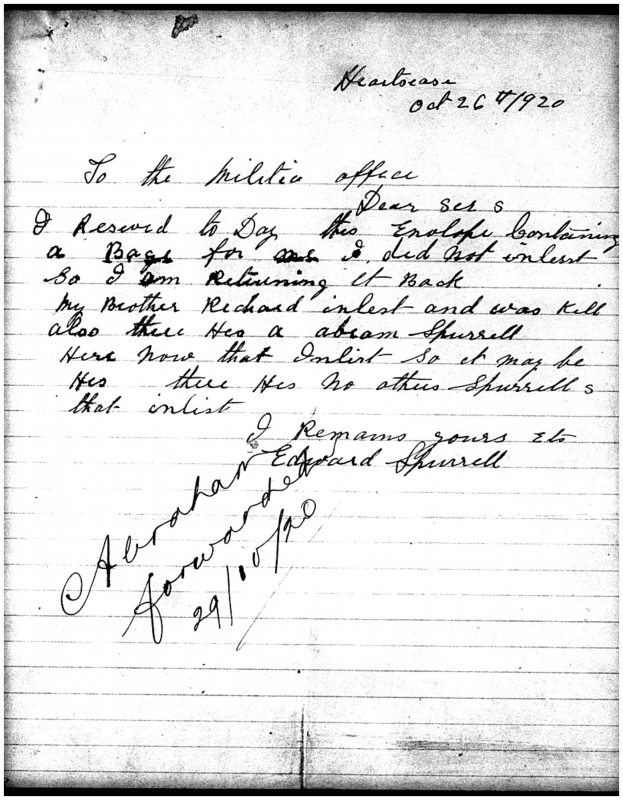 Heartsease
Oct 26th/920
To the Militia office
Dear sers
I Resived to Day this Envlope Containing
a Bage for me I did Not inlest
So I am Returning It Back
My Brother Richard inlest and was Kill
also there Hes a abram Spurrell
Here Now that Inlist So it may be
His there Hes No others Spurrells
that inlist
I Remains yours Etc
Edward Spurrell
Abraham
forwarded
29/10/20